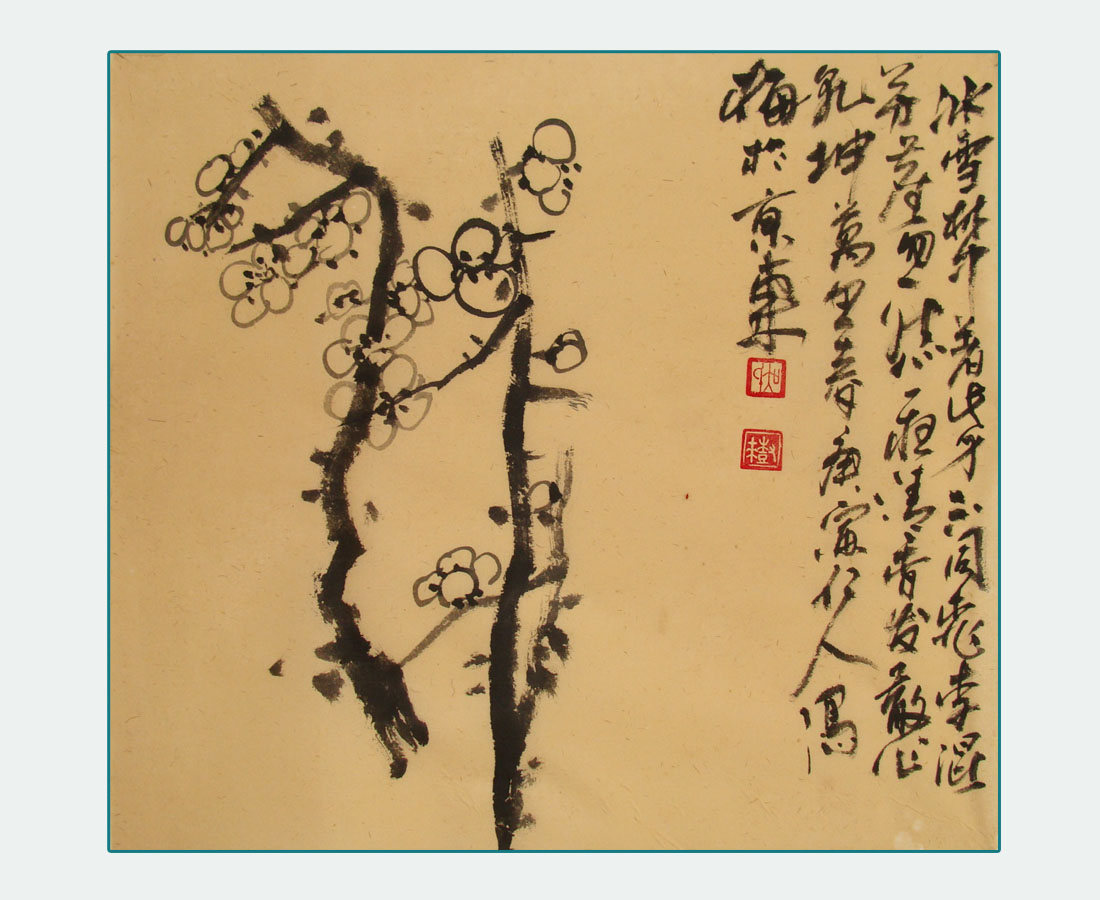 冰雪林中著此身不同桃李混
芳塵忽然一夜清香发散作
乾坤萬里春庚寅仁人寫
梅於京東